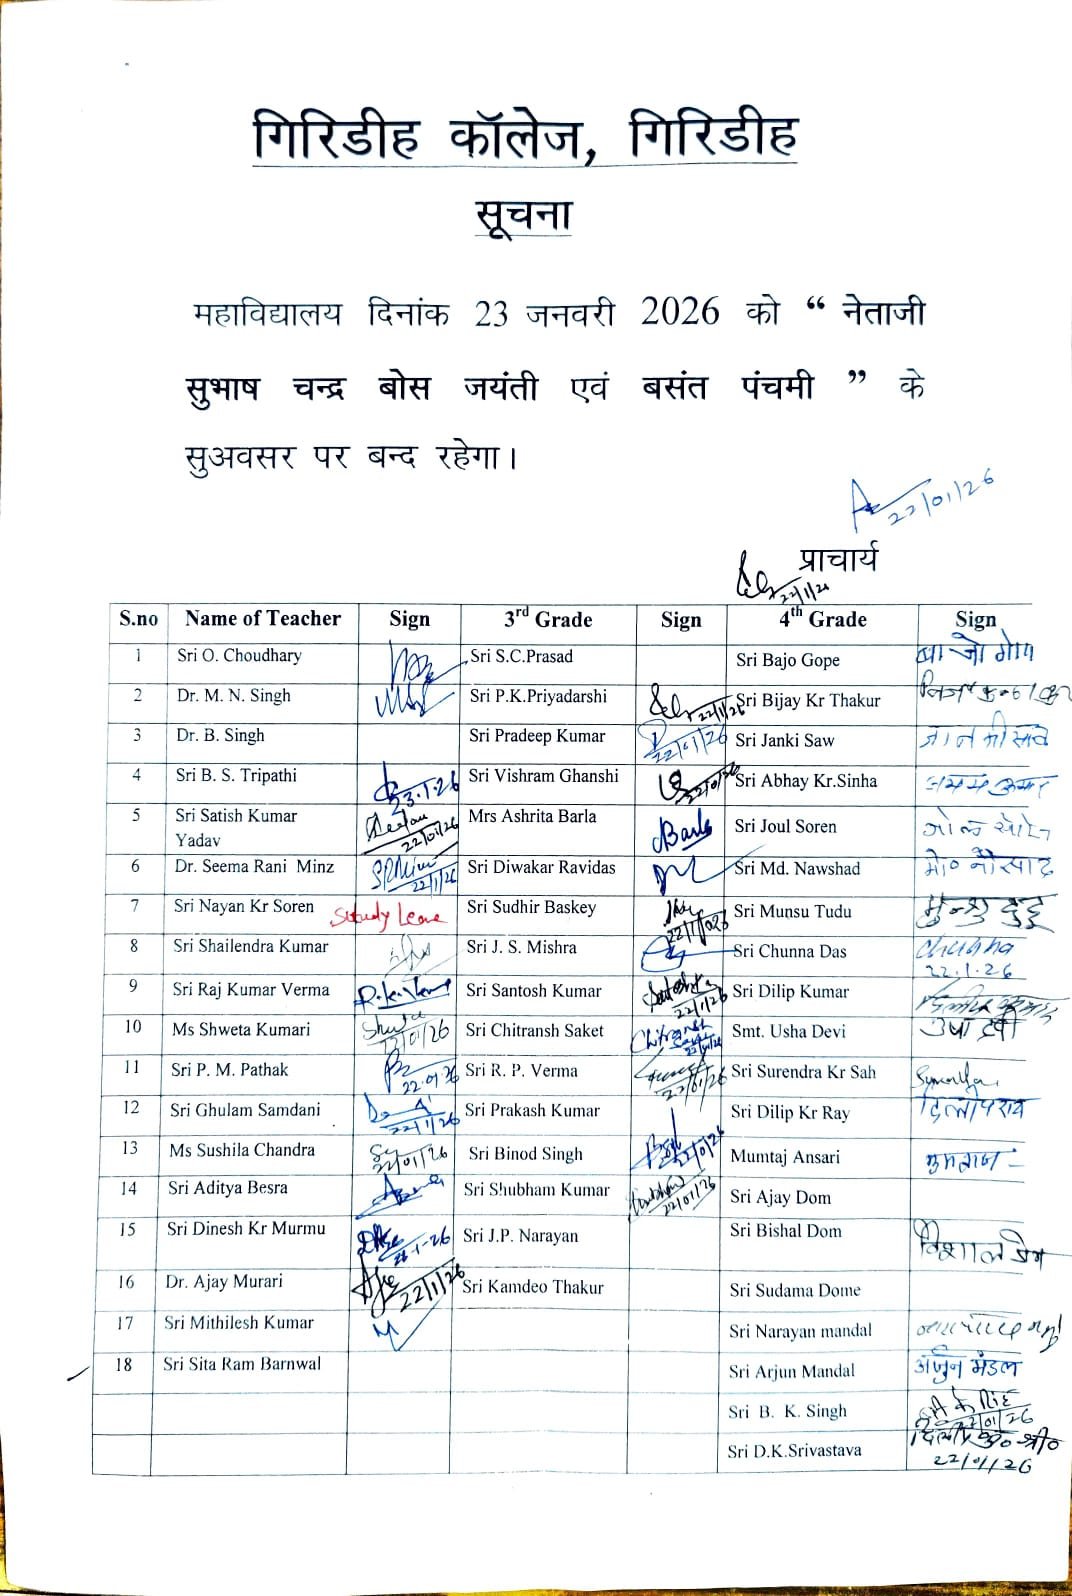 गिरिडीह कॉलेज, गिरिडीह
सूचना
महाविद्यालय दिनांक 23 जनवरी 2026 को “ नेताजी
सुभाष चन्द्र बोस जयंती एवं बसंत पंचमी ” के
सुअवसर पर बन्द रहेगा।
22/01/26
प्राचार्य
22/1/26
S.no Name of Teacher Sign 3rd Grade Sign 4th Grade Sign
1 Sri O. Choudhary Sri S.C.Prasad Sri Bajo Gope
2 Dr. M. N. Singh Sri P.K.Priyadarshi 22/1/26 Sri Bijay Kr Thakur
3 Dr. B. Singh Sri Pradeep Kumar 22/01/26 Sri Janki Saw
4 Sri B. S. Tripathi 23.1.26 Sri Vishram Ghanshi 22/01/26 Sri Abhay Kr.Sinha
5 Sri Satish Kumar 22/01/26 Mrs Ashrita Barla Barla Sri Joul Soren
Yadav
6 Dr. Seema Rani Minz 22/1/26 Sri Diwakar Ravidas Sri Md. Nawshad मो० नौसाद
7 Sri Nayan Kr Soren Study Leave Sri Sudhir Baskey Sri Munsu Tudu
8 Sri Shailendra Kumar Sri J. S. Mishra Sri Chunna Das Chunna
22.1.26
9 Sri Raj Kumar Verma Sri Santosh Kumar 22/1/26 Sri Dilip Kumar
10 Ms Shweta Kumari 22/01/26 Sri Chitransh Saket Chitransh Smt. Usha Devi उषा देवी
11 Sri P. M. Pathak 22.01.26 Sri R. P. Verma 22/01/26 Sri Surendra Kr Sah
12 Sri Ghulam Samdani 22/1/26 Sri Prakash Kumar Sri Dilip Kr Ray
13 Ms Sushila Chandra 22/01/26 Sri Binod Singh 22/01/26 Mumtaj Ansari
14 Sri Aditya Besra Sri Shubham Kumar 22/01/26 Sri Ajay Dom
15 Sri Dinesh Kr Murmu Sri J.P. Narayan Sri Bishal Dom विशाल डोम
16 Dr. Ajay Murari 22/1/26 Sri Kamdeo Thakur Sri Sudama Dome
17 Sri Mithilesh Kumar Sri Narayan mandal
18 Sri Sita Ram Barnwal Sri Arjun Mandal अर्जुन मंडल
Sri B. K. Singh 22/01/26
Sri D.K.Srivastava
22/01/26